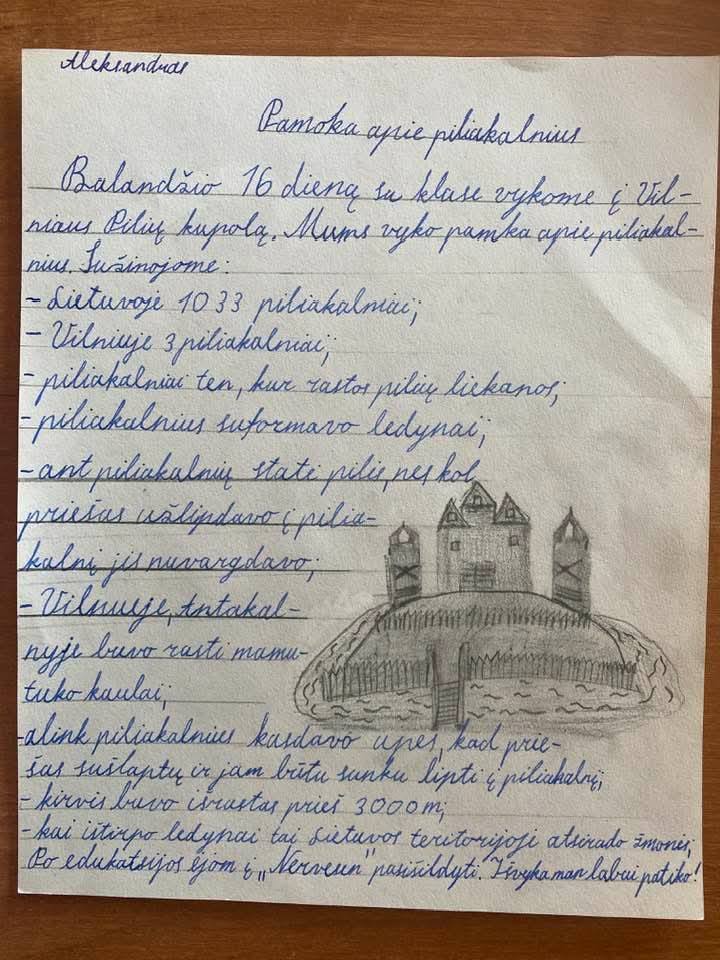 Aleksandras
Pamoka apie piliakalnius
Balandžio 16 dieną su klase vykome į Vil-
niaus Pilių kupolą. Mums vyko pamka apie piliakal-
nius. Sužinojome:
- Lietuvoje 1033 piliakalniai;
- Vilniuje 3 piliakalniai;
- piliakalniai ten, kur rastos pilių liekanos;
- piliakalnius suformavo ledynai;
- ant piliakalnių statė pilis, nes kol
priešas užlipdavo į pilia-
kalnį jis nuvargdavo;
- Vilniueje, Antakal-
nyje buvo rasti mamu-
tuko kaulai;
- alink piliakalnius kasdavo upes, kad prie-
šas sušlaptų ir jam būtu sunku lipti į piliakalnį;
- kirvis buvo išrastas prieš 3000m;
- kai ištirpo ledynai tai Lietuvos teritorijoji atsirado žmonės;
Po edukatsijos ėjom į „Nervesen" pasišildyti. Išvyka man labai patiko!